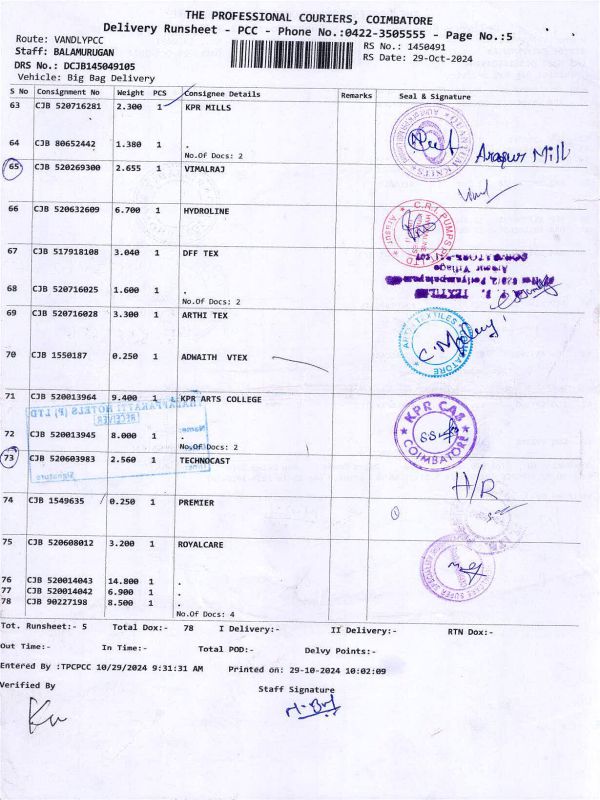 THE PROFESSIONAL COURIERS, COIMBATORE
Delivery Runsheet - PCC - Phone No.:0422-3505555 - Page No.:5
Route: VANDLYPCC
RS No.: 1450491
Staff: BALAMURUGAN
RS Date: 29-Oct-2024
DRS No.: DCJB145049105
Vehicle: Big Bag Delivery
S No Consignment No Weight PCS Consignee Details Remarks Seal & Signature
63 CJB 520716281 2.300 1 KPR MILLS
64 CJB 80652442 1.380 1 .
No.Of Docs: 2
Arasur Mill
65 CJB 520269300 2.655 1 VIMALRAJ
66 CJB 520632609 6.700 1 HYDROLINE
C.R.I. PUMPS P LTD
Arasur
67 CJB 517918108 3.040 1 DFF TEX
Arasur Village
TEXTILES
68 CJB 520716025 1.600 1 .
No.Of Docs: 2
69 CJB 520716028 3.300 1 ARTHI TEX
70 CJB 1550187 0.250 1 ADWAITH VTEX
71 CJB 520013964 9.400 1 KPR ARTS COLLEGE
HOTELS (P) LTD
RECEIVER
Name:
KPR CAS
COIMBATORE
72 CJB 520013945 8.000 1 .
No.Of Docs: 2
73 CJB 520603983 2.560 1 TECHNOCAST
Signature
H/R
74 CJB 1549635 0.250 1 PREMIER
75 CJB 520608012 3.200 1 ROYALCARE
76 CJB 520014043 14.800 1 .
77 CJB 520014042 6.900 1 .
78 CJB 90227198 8.500 1 .
No.Of Docs: 4
Tot. Runsheet:- 5 Total Dox:- 78 I Delivery:- II Delivery:- RTN Dox:-
Out Time:- In Time:- Total POD:- Delvy Points:-
Entered By :TPCPCC 10/29/2024 9:31:31 AM Printed on: 29-10-2024 10:02:09
Verified By
Staff Signature